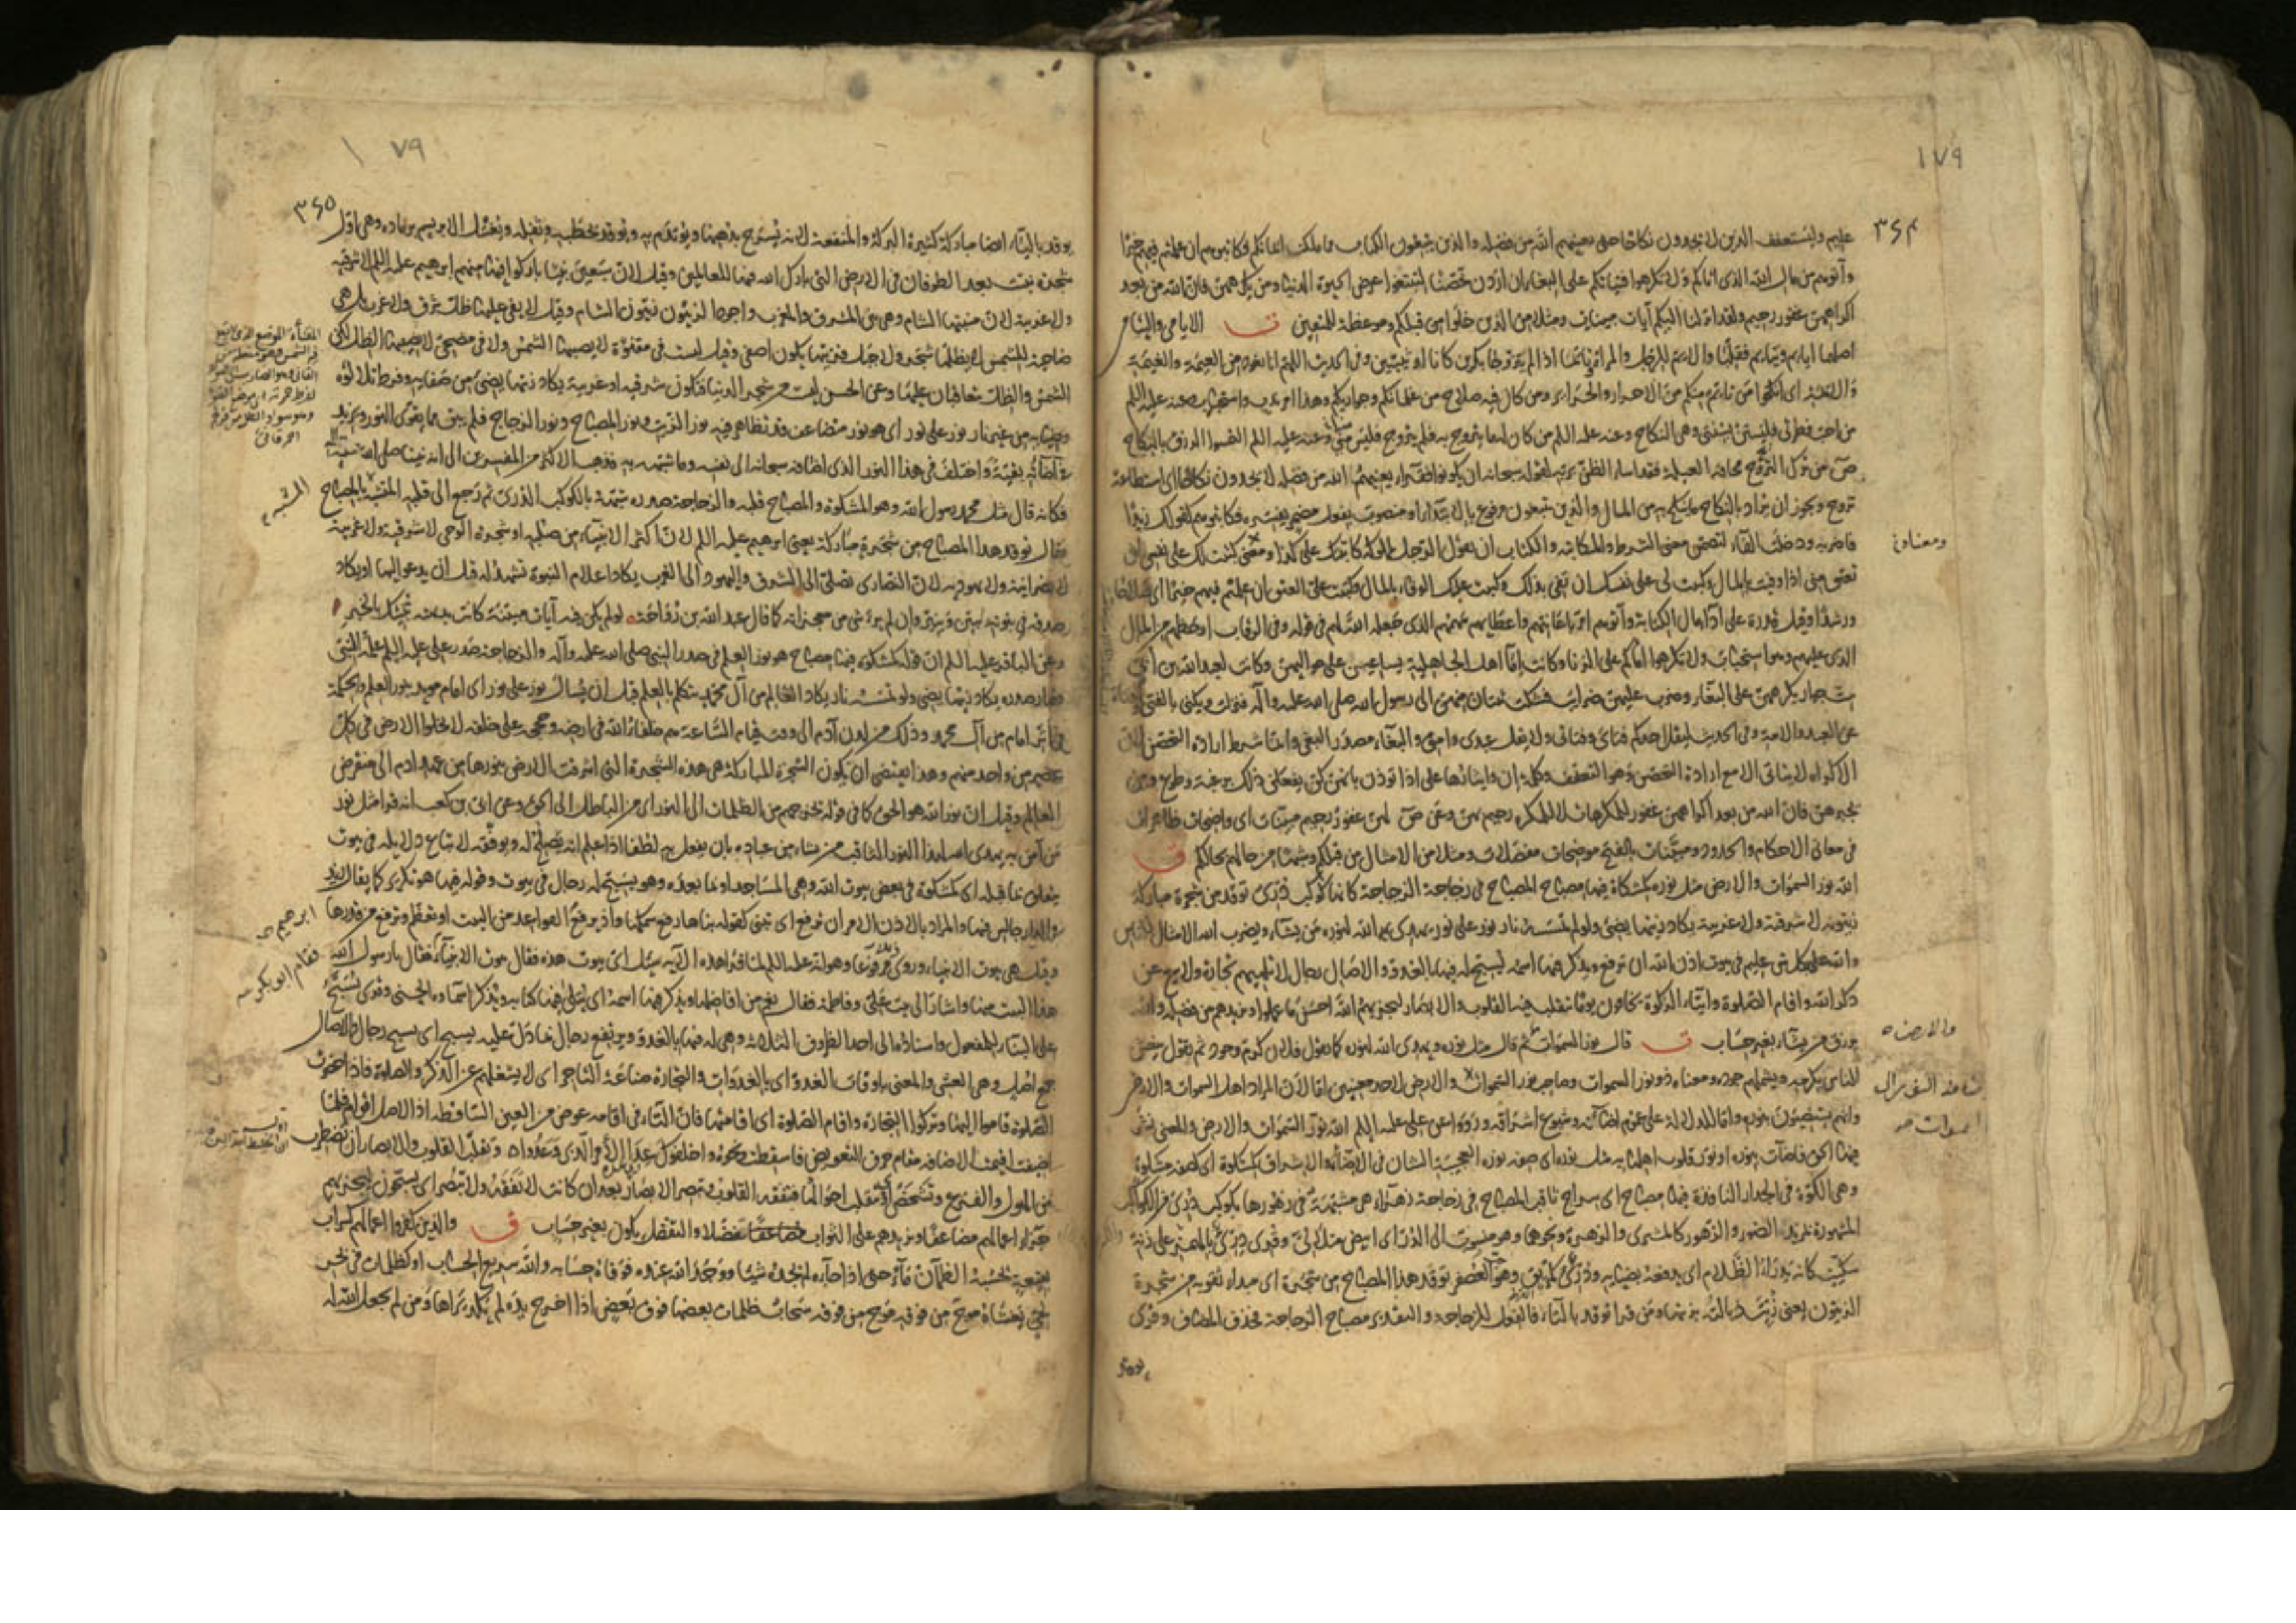 ١٧٩
٣۶۴
عليم وليستعفف الذين لا يجدون نكاحا حتى يغنيهم الله من فضله والذين يبتغون الكتاب مما ملكت ايمانكم فكاتبوهم ان علمتم فيهم خيرا
وآتوهم من مال الله الذى اتاكم ولا تكرهوا فتياتكم على البغاء ان اردن تحصنا لتبتغوا عرض الحيوة الدنيا ومن يكرههن فان الله من بعد
اكراههن غفور رحيم ولقد انزلنا اليكم آيات مبينات ومثلا من الذين خلوا من قبلكم وموعظة للمتقين الايامى واليتامى
اصلهما ايايم ويتايم فقلبتا والايم للرجل والمراة اذا لم يتزوجا بكرين كانا او ثيبين وفى الحديث اللهم انا نعوذ من العيمة والغيمة
والايمة اى انكحوا من تايم منكم من الاحرار والحراير ومن كان فيه صلاح من غلمانكم وجواريكم وهذا امر ندب واستحباب وعنه عليه اللم
من احب فطرتى فليستن بسنتى وهى النكاح وعنه عليه اللم من كان له ما يتزوج به فلم يتزوج فليس منى وعنه عليه اللم التمسوا الرزق بالنكاح
من ترك التزوج مخافة العيلة فقد اساء الظن بربه لقوله سبحانه ان يكونوا فقراء يغنهم الله من فضله لا يجدون نكاحا اى استطاعة
تزوج ويجوز ان يراد بالنكاح ما ينكح به من المال والذين يبتغون مرفوع بالابتداء او منصوب بفعل مضمر يفسره فكاتبوهم كقولك زيدا
فاضربه ودخلت الفاء لتضمن معنى الشرط والمكاتبة والكتاب ان يقول الرجل لمملوكه كاتبتك على كذا ومعنى كتبت لك على نفسى ان
تعتق منى اذا وفيت بالمال وكتبت لى على نفسك ان تفى بذلك وكتبت عليك الوفاء بالمال وكتبت على العتق ان علمتم فيهم خيرا اى صلاحا
ورشدا وقيل قدرة على اداء مال الكتابة وآتوهم امر باعانتهم واعطايهم سهمهم الذى جعله الله لهم فى قوله وفى الرقاب او حطهم من المال
الذى عليهم وهو استحباب ولا تكرهوا اماءكم على الزنا وكانت اماء اهل الجاهلية يساعين على مواليهن وكانت لعبد الله بن ابى
ست جوار يكرههن على البغاء وضرب عليهن ضرايب فشكت ثنتان منهن الى رسول الله صلى الله عليه وآله فنزلت ويكنى بالفتى والفتاة
عن العبد والامة وفى الحديث ليقل احدكم فتاى وفتاتى ولا يقل عبدى وامتى والبغاء مصدر البغى وانما شرط ارادة التحصن لان
الاكراه لا يتاتى الا مع ارادة التحصن وهو التعفف وكلمة ان وايثارها على اذا توذن بانهن كن يفعلن ذلك برغبة وطوع ومن
يجبرهن فان الله من بعد اكراههن غفور للمكرهات لا للمكره رحيم بهن وعن ص لهن غفور رحيم مبينات اى واضحات ظاهرات
فى معانى الاحكام والحدود ومبينات بالفتح موضحات مفصلات ومثلا من الامثال من قبلكم وشبها من حالهم بحالكم
الله نور السموات والارض مثل نوره كمشكاة فيها مصباح المصباح فى زجاجة الزجاجة كانها كوكب درى توقد من شجرة مباركة
زيتونة لا شرقية ولا غربية يكاد زيتها يضئ ولو لم تمسسه نار نور على نور يهدى الله لنوره من يشاء ويضرب الله الامثال للناس
والله بكل شئ عليم فى بيوت اذن الله ان ترفع ويذكر فيها اسمه يسبح له فيها بالغدو والاصال رجال لا تلهيهم تجارة ولا بيع عن
ذكر الله واقام الصلوة وايتاء الزكوة يخافون يوما تتقلب فيه القلوب والابصار ليجزيهم الله احسن ما عملوا ويزيدهم من فضله والله
يرزق من يشاء بغير حساب قال نور السموات ثم قال مثل نوره ويهدى الله لنوره كما يقول فلان كرم وجود ثم يقول ينعش
الناس بكرمه ويشملهم جوده ومعناه ذو نور السموات وصاحب نور السموات والارض لاحد معنيين اما لان المراد اهل السموات والارض
وانهم يستضيئون بنوره واما للدلالة على عموم اضاءته وشيوع اشراقه ورووا عن على عليه اللم الله نور السموات والارض والمعنى نشر
فيها الحق فاضاءت بنوره او نور قلوب اهلها به مثل نوره اى صفة نوره العجيبة الشان فى الاضاءة والاشراق كمشكوة اى كصفة مشكوة
وهى الكوة فى الجدار النافذة فيها مصباح اى سراج ثاقب المصباح فى زجاجة زهراء هى مشبهة فى زهورها بكوكب درى من الكواكب
المشهورة بمزيد الضوء والزهور كالمشترى والزهرة ونحوهما وهو منسوب الى الدر اى ابيض متلالئ وقرئ درئ بالهمز على زنة
سكيت كانه يدرا الظلام اى يدفعه بضيائه ودرئ كمريق وهو العصفر توقد هذا المصباح من شجرة اى مبداء ثقوبه من شجرة
الزيتون يعنى زيت ذبالته بزيتها ومن قرا توقد بالتاء فالفعل للزجاجة والتقدير مصباح الزجاجة فحذف المضاف وقرئ
ومعناه
والارض
السموات
٧٩ ١
٣۶٥
يوقد بالياء ايضا مباركة كثيرة البركة والمنفعة لانه يسرج بدهنها ويوتدم به ويوقد بحطبه وثفله ويغسل الابريسم برماده وهى اول
شجرة نبتت بعد الطوفان فى الارض التى بارك الله فيها للعالمين وقيل لان سبعين نبيا باركوا فيها منهم ابرهيم عليه اللم لا شرقية
ولا غربية لان منبتها الشام وهى بين المشرق والمغرب واجود الزيتون زيتون الشام وقيل لا يفئ عليها ظل شرق ولا غرب بل هى
ضاحية للشمس لا يظلها شجر ولا جبل فزيتها يكون اصفى وقيل ليست فى مقنوة لا يصيبها الشمس ولا فى مضحى لا يصيبها الظل لكن
الشمس والظل يتعاقبان عليها وعن الحسن ليست من شجر الدنيا فتكون شرقية او غربية يكاد زيتها يضئ من صفائه وفرط تلالؤه
وضيائه من غير نار نور على نور اى هو نور متضاعف قد تظاهر فيه نور الزيت ونور المصباح ونور الزجاج فلم يبق مما يقوى النور ويزيد
فى اضاءته بقية واختلف فى هذا النور الذى اضافه سبحانه الى نفسه وما شبهه به فذهب الاكثر من المفسرين الى انه نبينا صلى الله عليه وآله
فكانه قال مثل محمد رسول الله وهو المشكوة والمصباح قلبه والزجاجة صدره شبهه بالكوكب الدرى ثم رجع الى قلبه المشبه بالمصباح
فقال توقد هذا المصباح من شجرة مباركة يعنى ابرهيم عليه اللم لان اكثر الانبياء من صلبه او شجرة الوحى لا شرقية ولا غربية
لا نصرانية ولا يهودية لان النصارى تصلى الى المشرق واليهود الى المغرب يكاد اعلام النبوة تشهد له قبل ان يدعو اليها او يكاد
صدقه فى نبوته يبين وان لم ير شئ من معجزاته كما قال عبد الله بن رواحة لو لم يكن فيه آيات مبينة كانت بديهته تنبئك بالخبر
وعن الباقر عليه اللم ان قوله كمشكوة فيها مصباح هو نور العلم فى صدر النبى صلى الله عليه وآله والزجاجة صدر على عليه اللم علمه النبى
فصار صدره يكاد زيتها يضئ ولو لم تمسسه نار يكاد العالم من آل محمد يتكلم بالعلم قبل ان يسال نور على نور اى امام مويد بنور العلم والحكمة
فى اثر امام من آل محمد وذلك من لدن آدم الى وقت قيام الساعة هم خلفاء الله فى ارضه وحججه على خلقه لا تخلوا الارض فى كل
عصر من واحد منهم وهذا يقتضى ان يكون الشجرة المباركة هى هذه الشجرة التى اشرقت الارض بنورها من عهد ادم الى منقرض
العالم وقيل ان نور الله هو الحق كما فى قوله يخرجهم من الظلمات الى النور اى من الباطل الى الحق وعن ابى بن كعب انه قرا مثل نور
من آمن به يهدى الله لهذا النور الثاقب من يشاء من عباده بان يفعل به لطفا اذا علم انه يصلح له ويوفقه لاتباع دلايله فى بيوت
يتعلق بما قبله اى كمشكوة فى بعض بيوت الله وهى المساجد او بما بعده وهو يسبح له رجال فى بيوت وقوله فيها هو تكرير كما يقال زيد
فى الدار جالس فيها والمراد بالاذن الامر ان ترفع اى تبنى كقوله بناها رفع سمكها واذ يرفع القواعد من البيت او تعظم وترفع من قدرها
وقيل هى بيوت الانبياء وروى ذلك مرفوعا وهو انه عليه اللم لما قرا هذه الآية سئل اى بيوت هذه فقال بيوت الانبياء فقال يا رسول الله
هذا البيت منها واشار الى بيت على وفاطمة فقال نعم من افاضلها ويذكر فيها اسمه اى يتلى فيها كتابه ويذكر اسماؤه الحسنى وقرئ يسبح
على البناء للمفعول واسناده الى احد الظروف الثلاثة وهى له فيها بالغدو ويرتفع رجال بما دل عليه يسبح اى يسبح رجال والآصال
جمع اصل وهى العشى والمعنى باوقات الغدو اى بالغدوات والتجارة صناعة التاجر اى لا يشغلهم عن الذكر والصلوة فاذا حضرت
الصلوة قاموا اليها وتركوا التجارة واقام الصلوة اى اقامتها فان التاء فى اقامة عوض من العين الساقطة اذ الاصل اقوام فلما
اضيفت اقيمت الاضافة مقام حرف التعويض فاسقطت ونحوه واخلفوك عدا الامر الذى وعدوا وتقلب القلوب والابصار ان تضطرب
من الهول والفزع وتشخص او تتقلب احوالها فتفقه القلوب وتبصر الابصار بعد ان كانت لا تفقه ولا تبصر اى يسبحون ليجزيهم
جزاء اعمالهم مضاعفا ويزيدهم على الثواب تفضلا والتفضل يكون بغير حساب والذين كفروا اعمالهم كسراب
بقيعة يحسبه الظمآن ماء حتى اذا جاءه لم يجده شيئا ووجد الله عنده فوفاه حسابه والله سريع الحساب او كظلمات فى بحر
لجى يغشاه موج من فوقه موج من فوقه سحاب ظلمات بعضها فوق بعض اذا اخرج يده لم يكد يراها ومن لم يجعل الله له
ابرهيم
فقام ابو بكر